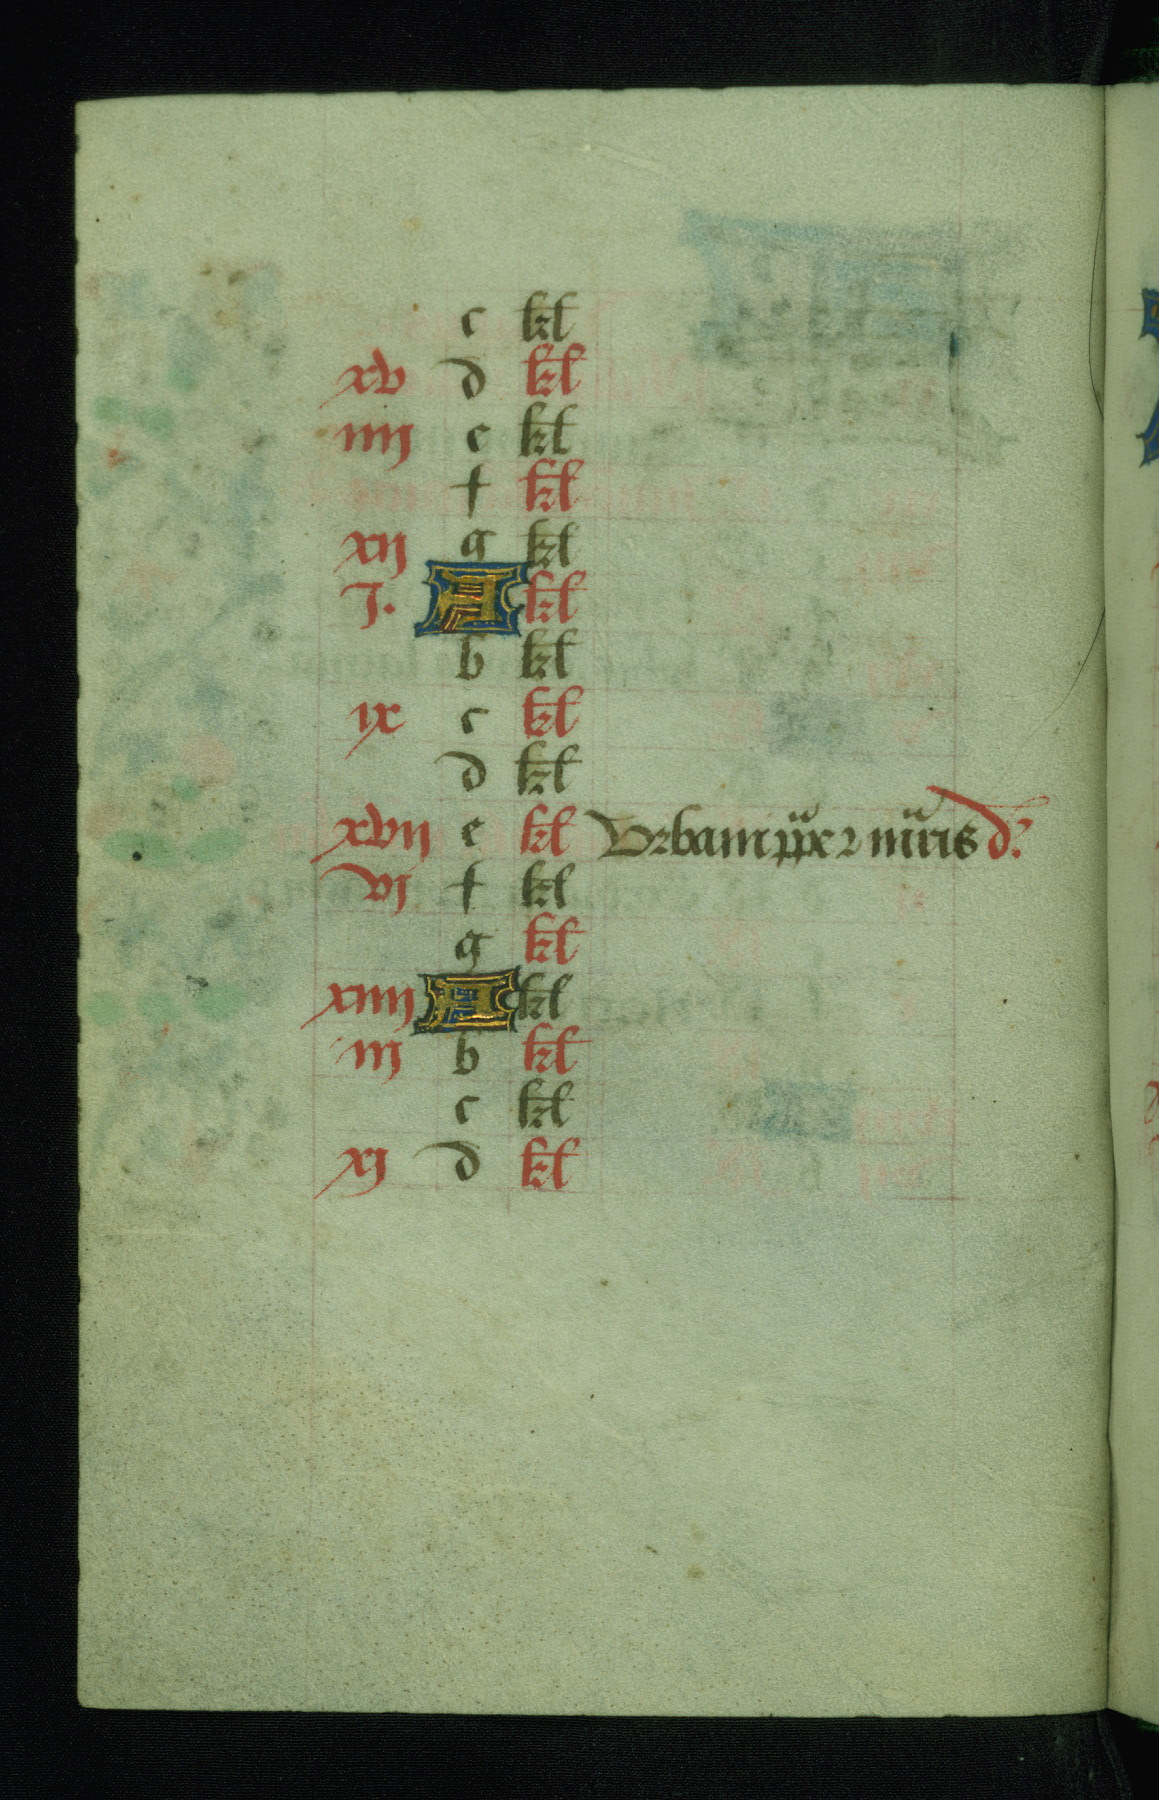 c kl
xv d kl
iiij e kl
f kl
xij g kl
j. A kl
b kl
ix c kl
d kl
xvij e kl Urbani ppe ⁊ mr̃is d̾
vj f kl
g kl
xiiij A kl
iij b kl
c kl
xj d kl